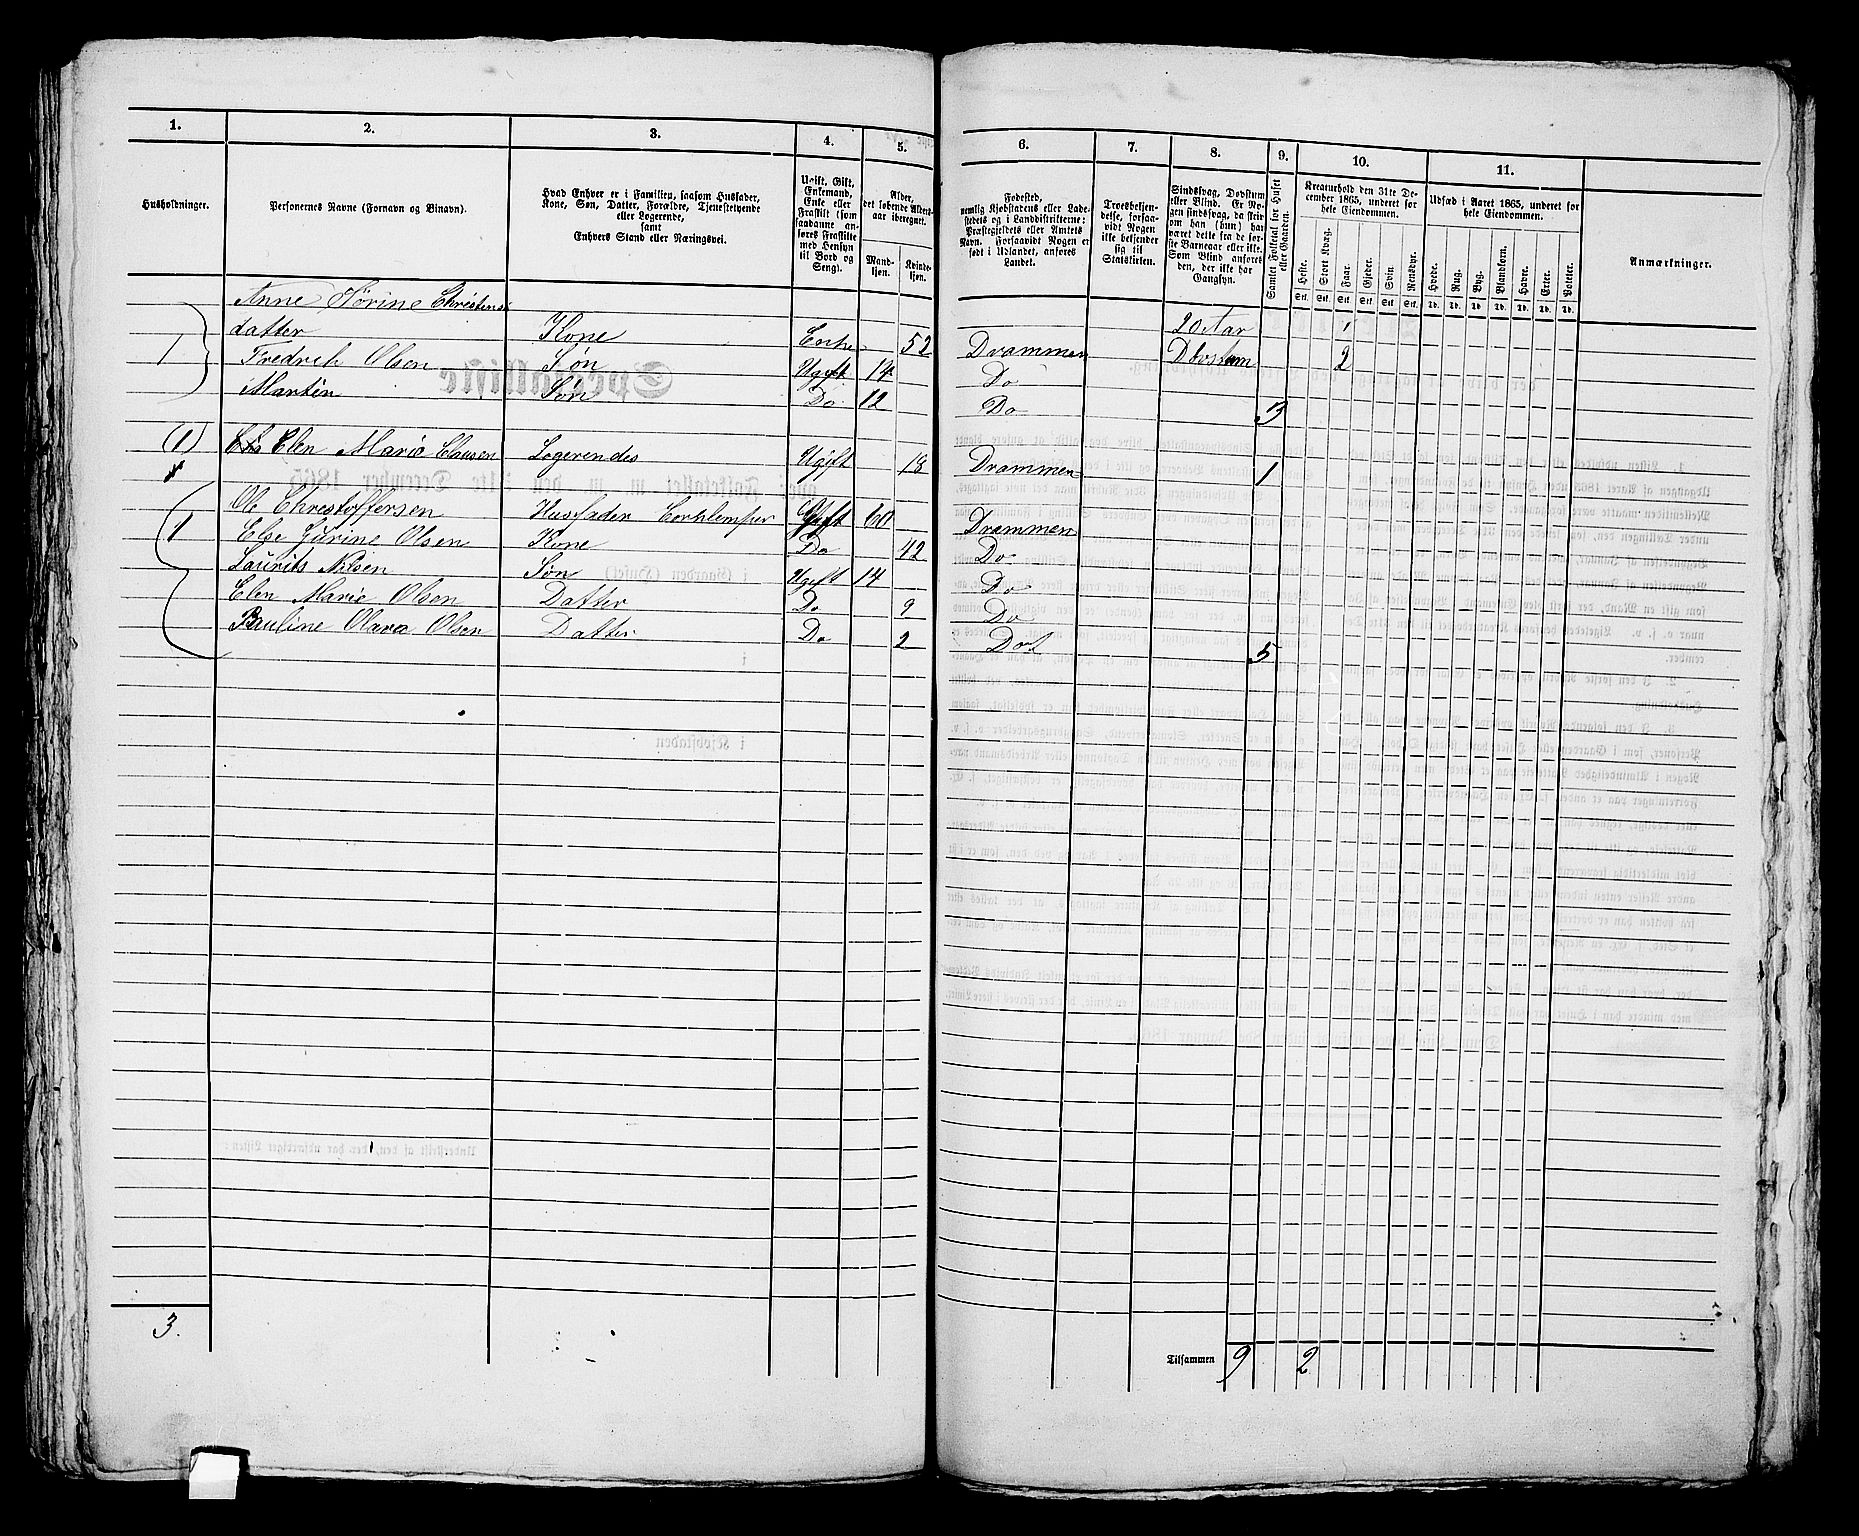 1. 2. 3. 4. 5. 6. 7. 8. 9. 10. 11.
Husholdninger.
Personernes Navne (Fornavn og Binavn).
Hvad Enhver er i Familien, saasom Husfader,
Kone, Søn, Datter, Forældre, Tjenestetyende
eller Logerende,
samt
Enhvers Stand eller Næringsvei.
Ugift, Gift,
Enkemand,
Enke eller
Fraskilt (som
saadanne an-
føres Fraskilte
med Hensyn
til Bord og
Seng).
Alder,
det løbende Alders-
aar iberegnet.
Mand-
kjøn.
Kvinde-
kjøn.
Fødested,
nemlig Kjøbstadens eller Lade-
stedets og i Landdistrikterne:
Præstegjeldets eller Amtets
Navn. Forsaavidt Nogen er
født i Udlandet, anføres
Landet.
Troesbekjen-
delse, forsaa-
vidt Nogen
ikke bekjender
sig til
Statskirken.
Sindssvag, Døvstum
eller Blind. Er No-
gen sindssvag, da skri-
ves om han (hun) har
været dette fra de før-
ste Barneaar eller ikke.
Som Blind anføres
den, der ikke har
Gangsyn.
Samlet Folketal for Huset
eller Gaarden.
Kreaturhold den 31te De-
cember 1865, underet for
hele Eiendommen.
Heste. Stort Kvæg. Faar. Gjeder. Svin. Rensdyr.
Stk. Stk. Stk. Stk. Stk. Stk.
Udsæd i Aaret 1865, underet for
hele Eiendommen.
Hvede. Rug. Byg. Blandkorn. Havre. Erter. Poteter.
Td. Td. Td. Td. Td. Td. Td.
Anmærkninger.
Anne Sørine Christens
1 datter Kone Enke 52 Drammen 20 Aar 1
Fredrik Olsen Søn Ugift 14 Do Døvstum 2
Martin Søn Do 12 Do 3
(1) Elen Marie Clausen Logerendes Ugift 18 Drammen 1
1 Ole Christoffersen Husfader Gift 60 Drammen
Else Jørine Olsen Kone Do 42 Do
Laurits Nilsen Søn Ugift 14 Do
Elen Marie Olsen Datter Do 9 Do
Pauline Olava Olsen Datter Do 2 Do 5
3.
Tilsammen 9 2